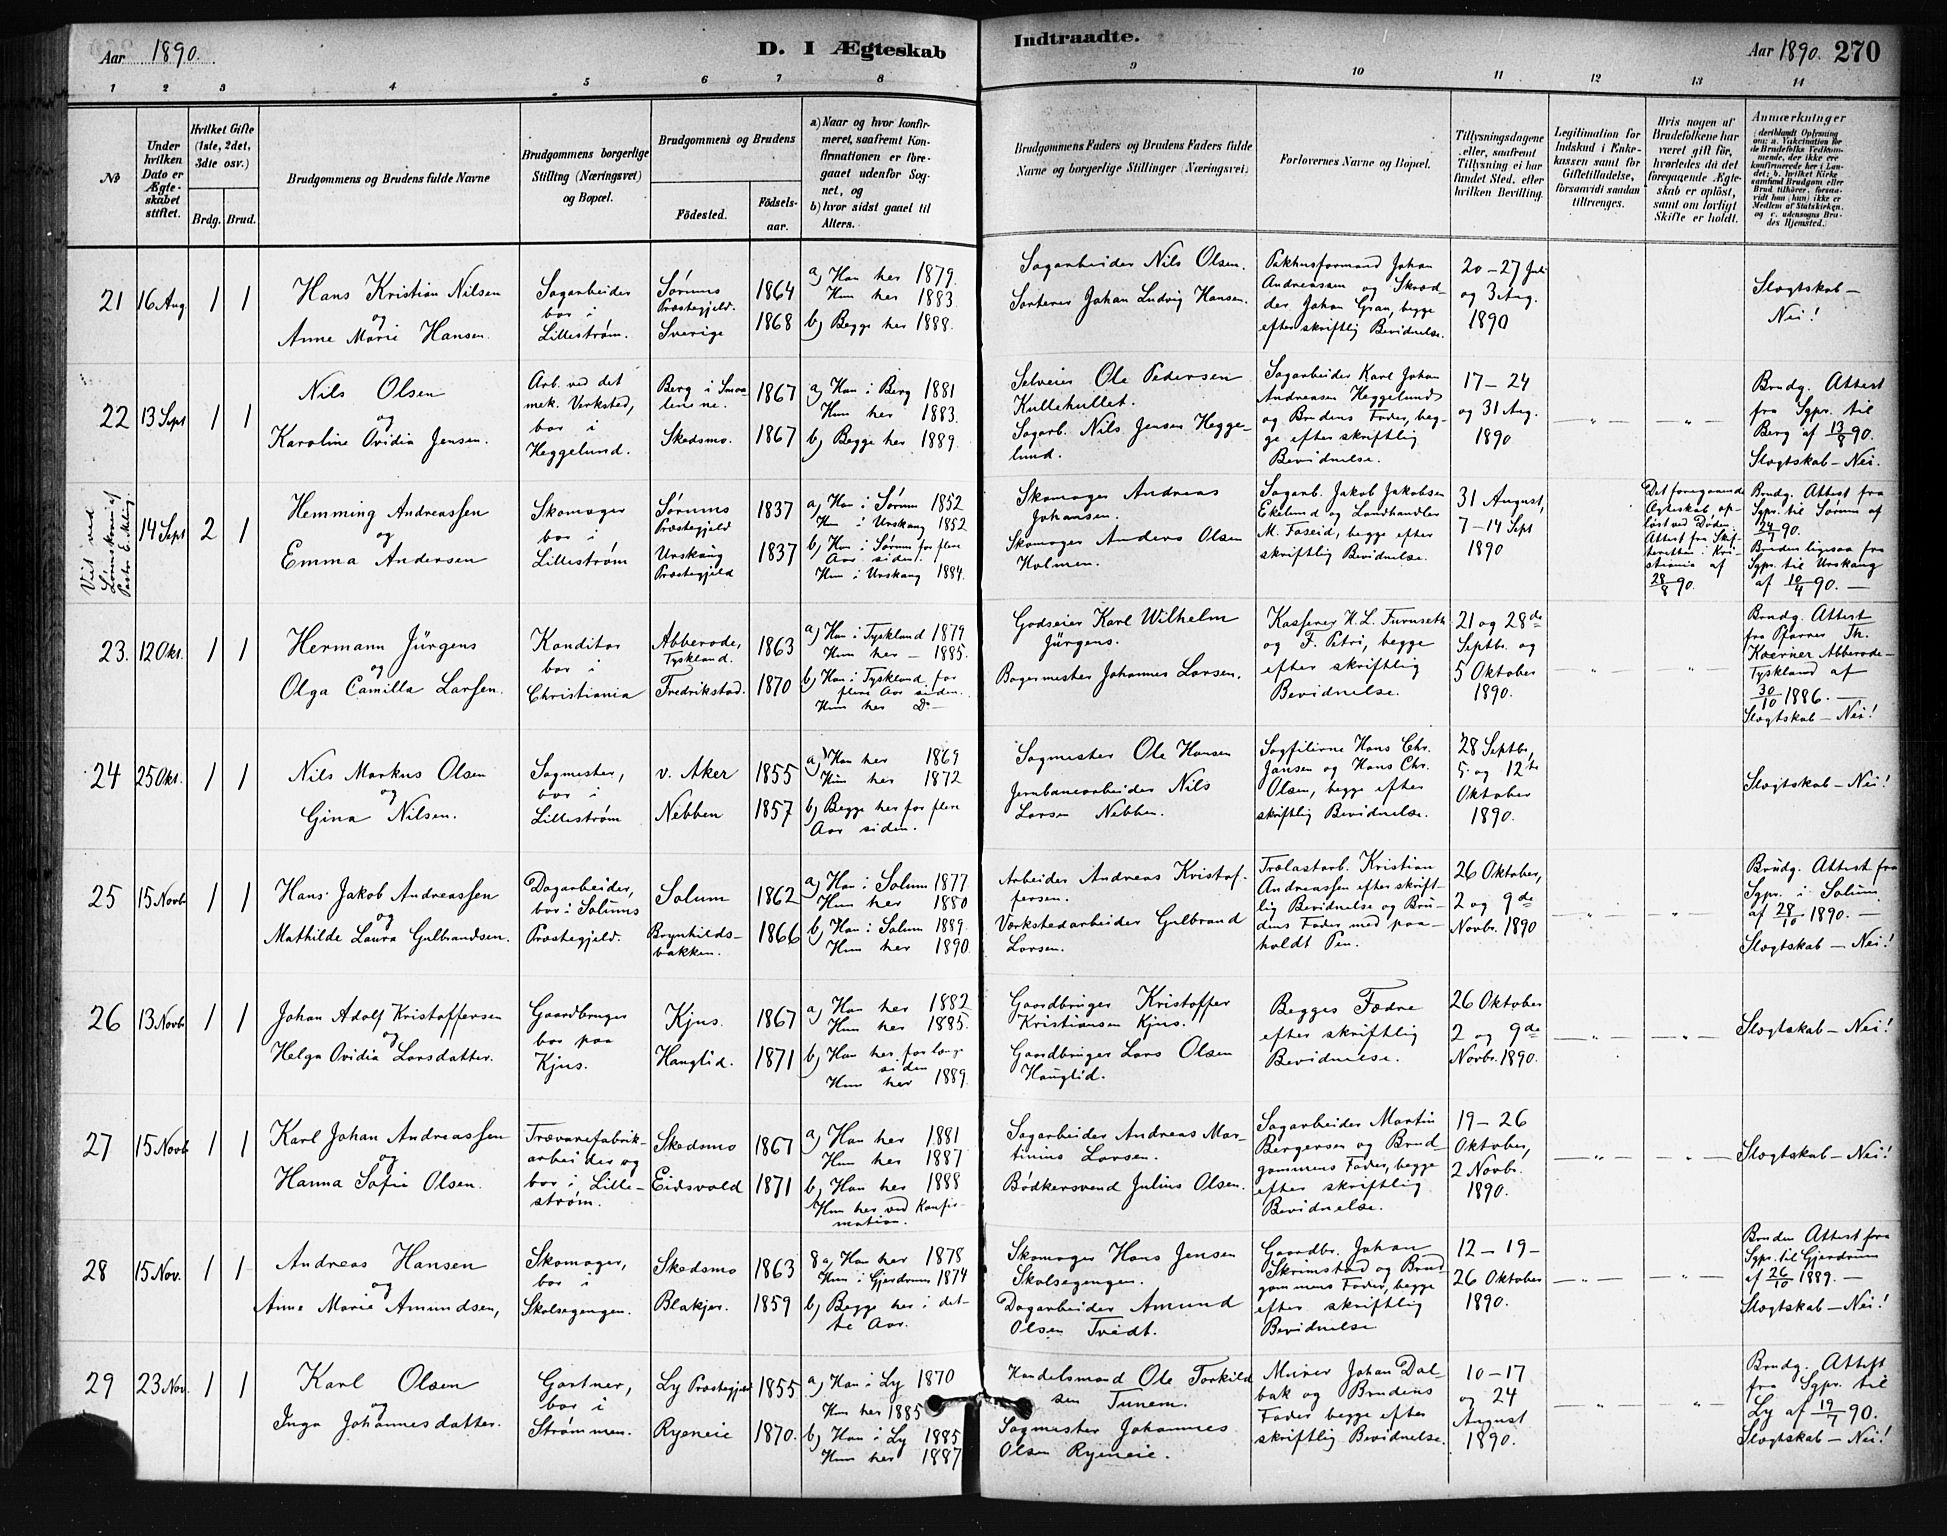 Aar 1890.
D. I Ægteskab
Indtraadte.
Aar 1890. 270
1 2 3 4 5 6 7 8 9 10 11 12 13 14
No
Under
hvilken
Dato er
Ægte-
skabet
stiftet.
Hvilket Gifte
(1ste, 2det,
3die osv.)
Brdg. Brud.
Brudgommens og Brudens fulde Navne
Brudgommens borgerlige
Stilling (Næringsvei)
og Bopæl.
Brudgommens og Brudens
Fødested.
Fødsels-
aar.
a) Naar og hvor konfir-
meret, saafremt Kon-
firmationen er fore-
gaaet udenfor Sog-
net, og
b) hvor sidst gaaet til
Alters.
Brudgommens Faders og Brudens Faders fulde
Navne og borgerlige Stillinger (Næringsvei)
Forlovernes Navne og Bopæl.
Tillysningsdagene
eller, saafremt
Tillysning ei har
fundet Sted, efter
hvilken Bevilling.
Legitimation for
Indskud i Enke-
kassen samt for
Giftetilladelse,
forsaavidt saadan
tiltrænges.
Hvis nogen af
Brudefolkene har
været gift før,
hvorledes da det
foregaaende Ægte-
skab er opløst,
samt om lovligt
Skifte er holdt.
Anmærkninger
(deriblandt Oplysning
om: a. Vakcination for
de Brudefolks Vedkom-
mende, der ikke ere
konfirmerede her i Lan-
det; b. hvilket Kirke-
samfund Brudgom eller
Brud tilhører, forsaa-
vidt han (hun) ikke er
Medlem af Statskirken,
og c. udensogns Bru-
des Hjemsted.)
21 16 Aug 1 1
Hans Kristian Nilsen
og
Anne Marie Hansen.
Sagarbeider
bor i
Lillestrøm.
Sørums
Præstegjeld.
Sverige
1864
1868
a) Han her 1879.
Hun her 1883.
b) Begge her 1888.
Sagarbeider Nils Olsen.
Sorterer Johan Ludvig Hansen.
Pakhusformand Johan
Andreassen og Skræd-
der Johan Gran, begge
efter skriftlig Bevidnelse.
20-27 Juli
og 3 Aug.
1890
Slægtskab -
Nei!
22 13 Sept 1 1
Nils Olsen
og
Karoline Ovidia Jensen.
Arb. ved det
mek. Værksted,
bor i
Heggelund.
Berg i Smaa-
lenene.
Skedsmo.
1867
1867
a) Han i Berg 1881
Hun her 1883.
b) Begge her 1889.
Selveier Ole Pedersen
Kullehullet.
Sagarb. Nils Jensen Hegge-
lund.
Sagarbeider Karl Johan
Andreasen Heggelund
og Brudens Fader, beg-
ge efter skriftlig
Bevidnelse.
17-24
og 31 Aug.
1890
— " — — " —
Brudg. Attest
fra Sgpr. til
Berg af 13/8 90.
Slægtskab - Nei.
Viet ved
Lørenskov af
Pastor E. Kling.
14 Sept 2 1
Hemming Andreassen
og
Emma Andersen
Skomager
bor i
Lillestrøm
Sørums
Præstegjeld
Urskoug
Præstegjeld
1837
1837
a) Han i Sørum 1852
Hun i Urskoug 1852
b) Han i Sørum for flere
Aar siden.
Hun i Urskoug 1884.
Skomager Andreas
Johansen.
Skomager Anders Olsen
Holmen.
Sagarb. Jakob Jakobsen
Ekelund og Landhandler
M. Faseid, begge efter
skriftlig Bevidnelse.
31 August,
7-14 Sept
1890
Det foregaaende
Ægteskab op-
løst ved Døden.
Attest fra Skif-
teretten i Kri-
stiania af
28/8 90.
Brudg. Attest fra
Sgpr. til Sørum af
24/7 90.
Bruden ligesaa fra
Sgpr. til Urskoug
af 10/4 90. —
23. 12 Okt. 1 1
Hermann Jürgens
og
Olga Camilla Larssen.
Konditor
bor i
Christiania
Abberode,
Tyskland.
Fredrikstad.
1863
1870
a) Han i Tyskland 1879
Hun her — 1885.
b) Han i Tyskland for
flere Aar siden.
Hun her Do —
Godseier Karl Wilhelm
Jürgens.
Bagermester Johannes Larsen.
Kasserer H. L. Furuseth
og F. Petri, begge
efter skriftlig
Bevidnelse.
21 og 28de
Septbr. og
5 Oktober
1890.
— " — — " —
Brudg. Attest
fra Pfarrer Th.
Koerner Abberode -
Tyskland af
30/10 1886. —
Slægtskab - Nei!
24 25 Okt. 1 1
Nils Markus Olsen
og
Gina Nilsen.
Sagmester,
bor i
Lillestrøm
v. Aker
Nebben
1855
1857
a) Han her 1869
Hun her 1872
b) Begge her for flere
Aar siden.
Sagmester Ole Hansen
Jernbanearbeider Nils
Larsen Nebben.
Sagfilerne Hans Chr.
Jansen og Hans Chr.
Olsen, begge efter
skriftlig Bevidnelse.
28 Septbr,
5 og 12te
Oktober
1890.
Slægtskab - Nei!
25 15 Novb. 1 1
Hans Jakob Andreassen
og
Mathilde Laura Gulbrandsen.
Dagarbeider,
bor i Solums
Præstegjeld.
Solum
Brynhilds-
bakken.
1862
1866
a) Han i Solum 1877.
Hun her 1880
b) Han i Solum 1889.
Hun her 1890.
Arbeider Andreas Kristof-
fersen.
Værkstedarbeider Gulbrand
Larsen.
Trælastarb. Kristian
Andreassen efter skrift-
lig Bevidnelse og Bru-
dens Fader med paa-
holdt Pen.
26 Oktober,
2 og 9de
Novbr. 1890
— " — — " —
Brudg. Attest fra
Sgpr. i Solum
af 28/10 1890. —
Slægtskab - Nei!
26 13 Novb. 1 1
Johan Adolf Kristoffersen
og
Helga Ovidia Larsdatter.
Gaardbruger
bor paa
Kjus.
Kjus.
Hauglid.
1867
1871
a) Han her 1882
Hun her 1885.
b) Han her for længe
siden
Hun her 1889.
Gaardbruger Kristoffer
Kristiansen Kjus.
Gaardbruger Lars Olsen
Hauglid.
Begges Fædre
efter skriftlig
Bevidnelse.
26 Oktober
2 og 9de
Novbr. 1890.
— " — — " —
Slægtskab - Nei!
27 15 Novb. 1 1
Karl Johan Andreassen
og
Hanna Sofie Olsen.
Trævarefabrik-
arbeider og
bor i Lille-
strøm.
Skedsmo
Eidsvold
1867
1871
a) Han her 1881
Hun her 1887
b) Han her 1888
Hun her ved Konfir-
mation.
Sagarbeider Andreas Mar-
tinius Larsen.
Bødkersvend Julius Olsen.
Sagarbeider Martin
Bergersen og Brud-
gommens Fader, begge
efter skriftlig
Bevidnelse.
19-26
Oktober,
2 Novbr.
1890.
— " — — " —
Slægtskab - Nei!
28 15 Nov. 1 1
Andreas Hansen
og
Anne Marie Amundsen,
Skomager,
bor i
Skolsegengen.
Skedsmo
Blakjer.
1863
1859
8 a) Han her 1878
Hun i Gjerdrum 1874
b) Begge her i det-
te Aar.
Skomager Hans Jensen
Skolsegengen.
Dagarbeider Amund
Olsen Tvedt.
Gaardbr. Johan
Skrimstad og Brud-
gommens Fader, begge
efter skriftlig
Bevidnelse
12-19-
26 Oktober
1890.
— " — — " —
Bruden Attest fra
Sgpr. til Gjerdrum
af 26/10 1889. —
Slægtskab - Nei!
29 23 Nov. 1 1
Karl Olsen
og
Inga Johannesdatter.
Gartner,
bor i
Strømmen.
Ly Præstegjeld
Ryeneie
1855
1870.
a) Han i Ly 1870
Hun her 1885
b) Han i Ly 1885
Hun her 1887
Handelsmand Ole Torkild-
sen Tunem.
Sagmester Johannes
Olsen Ryeneie.
Murer Johan Dal-
bak og Brudens
Fader begge efter
skriftlig Bevidnelse.
10-17
og 24
August
1890.
— " — — " —
Brudg. Attest
fra Sgpr. til
Ly af 19/7 90.
Slægtskab - Nei!